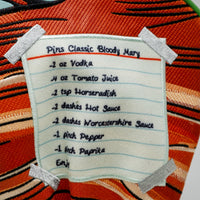 Pins Classic Bloody Mary
-2 oz Vodka
-4 oz Tomato Juice
-1 tsp Horseradish
-2 dashes Hot Sauce
-2 dashes Worcestershire Sauce
-1 Pinch Pepper
-1 Pinch Paprika